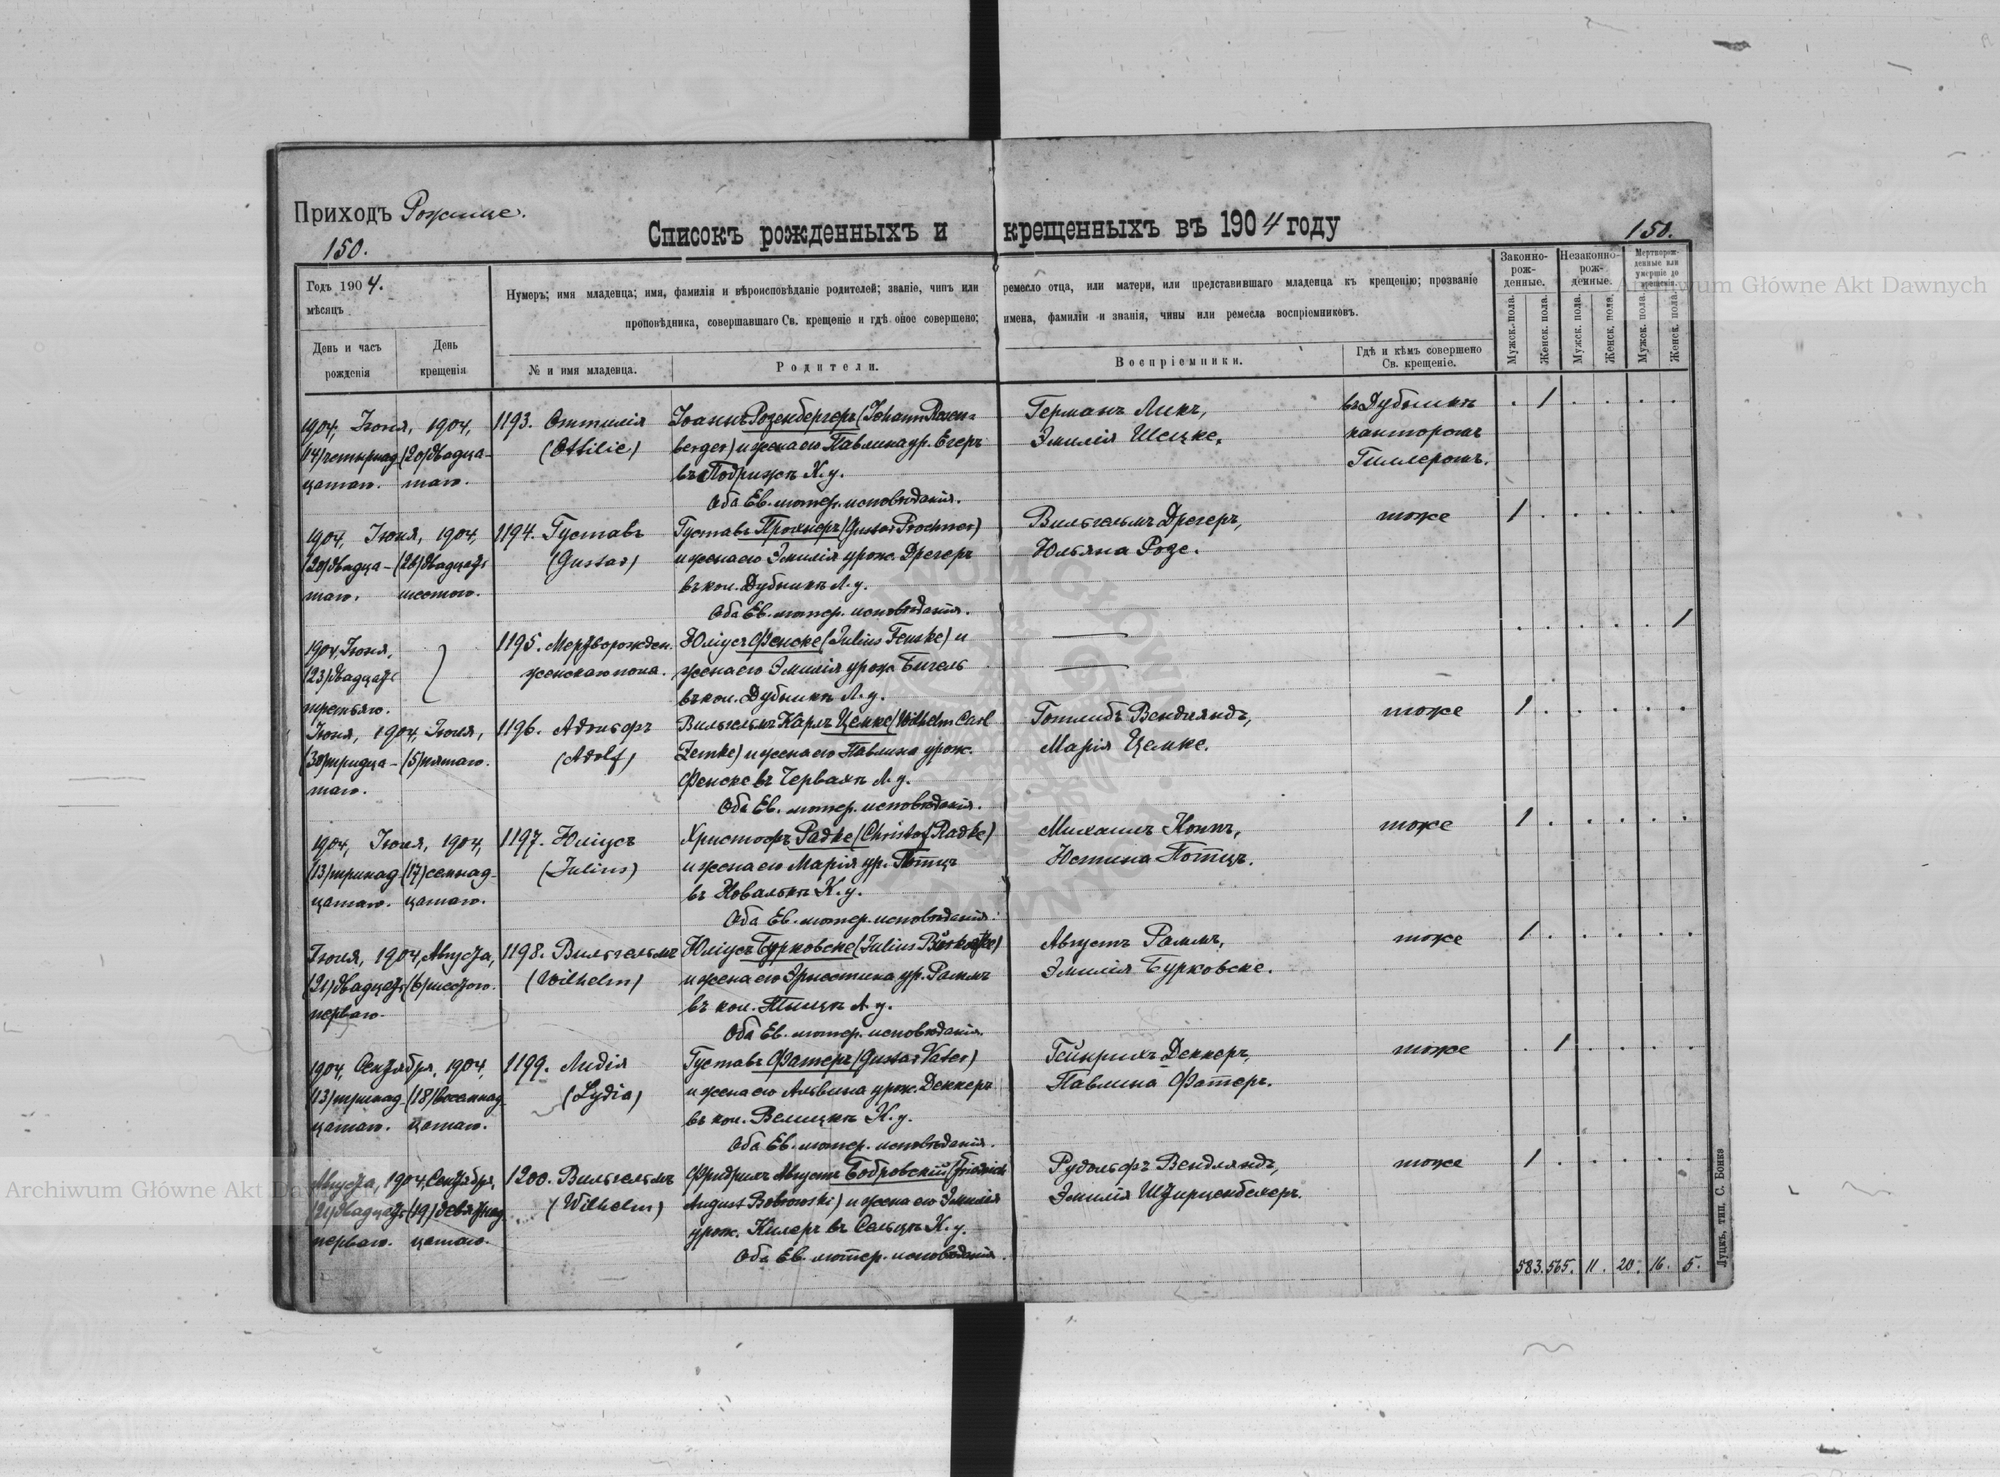 Приходъ Рожище.
150.
Списокъ рожденныхъ и крещенныхъ въ 1904 году
150.
Годъ 1904.
мѣсяцъ
День и часъ рожденія
День крещенія
Нумеръ; имя младенца; имя, фамилія и вѣроисповѣданіе родителей; званіе, чинъ или ремесло отца, или матери, или представившаго младенца къ крещенію; прозваніе
проповѣдника, совершавшаго Св. крещеніе и гдѣ оное совершено; имена, фамиліи и званія, чины или ремесла воспріемниковъ.
№ и имя младенца.
Родители.
Воспріемники.
Гдѣ и кѣмъ совершено Св. крещеніе.
Законно-рож-денные.
Незаконно-рож-денные.
Мертворож-денные или умершіе до крещенія.
Мужск. пола.
Женск. пола.
Мужск. пола.
Женск. пола.
Мужск. пола.
Женск. пола.
1904, Іюня, 1904, 1193. Оттилія Іоаннъ Розенбергеръ (Johann Rosen= Германъ Ликъ, въ Дубыщѣ . 1 . . . .
(14) четырнад- (20) двадца- (Ottilie) berger) и жена его Павлина ур. Егеръ Эмилія Шецке. канторомъ
цатаго. таго. въ Подрижѣ К. у. Гиллеромъ.
Оба Ев. лютер. исповѣданія.
1904, Іюня, 1904, 1194. Густавъ Густавъ Прохнеръ (Gustav Prochner) Вильгельмъ Дрегеръ, тоже 1 . . . . .
(20) двадца- (26) двадцать (Gustav) и жена его Эмилія урож. Дрегеръ Юльяна Розе.
таго. шестого. въ кол. Дубыщѣ Л. у.
Оба Ев. лютер. исповѣданія.
1904, Іюня, 1195. Мертворожден. Юліусъ Фенске (Julius Fenske) и . . . . . 1
(23) двадцать женскаго пола. жена его Эмилія урож. Бигель
третьяго. въ кол. Дубыщѣ Л. у.
Іюня, 1904, Іюля, 1196. Адольфъ Вильгельмъ Карлъ Цемке (Wilhelm Carl Готлибъ Вендляндъ, тоже 1 . . . . .
(30) тридца- (5) пятаго. (Adolf) Zemke) и жена его Павлина урож. Марія Цемке.
таго. Фенске въ Червахъ Л. у.
Оба Ев. лютер. исповѣданія.
1904, Іюля, 1904, 1197. Юліусъ Христофъ Радке (Christof Radke) Михаилъ Коппъ, тоже 1 . . . . .
(13) тринад- (17) семнад- (Julius) и жена его Марія ур. Потцъ Юстина Потцъ.
цатаго. цатаго. въ Ковалькѣ К. у.
Оба Ев. лютер. исповѣданія.
Іюля, 1904, Августа, 1198. Вильгельмъ Юліусъ Бурковске (Julius Burkowske) Августъ Раммъ, тоже 1 . . . . .
(21) двадцать (6) шестого. (Wilhelm) и жена его Эрнестина ур. Раммъ Эмилія Бурковске.
перваго. въ кол. Л. у.
Оба Ев. лютер. исповѣданія.
1904, Сентября, 1904, 1199. Лидія Густавъ Фатеръ (Gustav Vater) Гейнрихъ Деккеръ, тоже . 1 . . . .
(13) тринад- (18) восемнад- (Lydia) и жена его Альвина урож. Деккеръ Павлина Фатеръ.
цатаго. цатаго. въ кол. Велицкѣ К. у.
Оба Ев. лютер. исповѣданія.
Августа, 1904, Сентября, 1200. Вильгельмъ Фридрихъ Августъ Бобровскій (Friedrich Рудольфъ Вендляндъ, тоже 1 . . . . .
(21) двадцать (19) девятнад- (Wilhelm) August Bobrowski) и жена его Эмилія Эмилія Штирценбехеръ.
перваго. цатаго. урож. Килеръ въ Сельцѣ К. у.
Оба Ев. лютер. исповѣданія.
583. 565. 11. 20. 16. 5.
Луцкъ, тип. С. Бонкъ
Archiwum Główne Akt Dawnych
Archiwum Główne Akt Dawnych